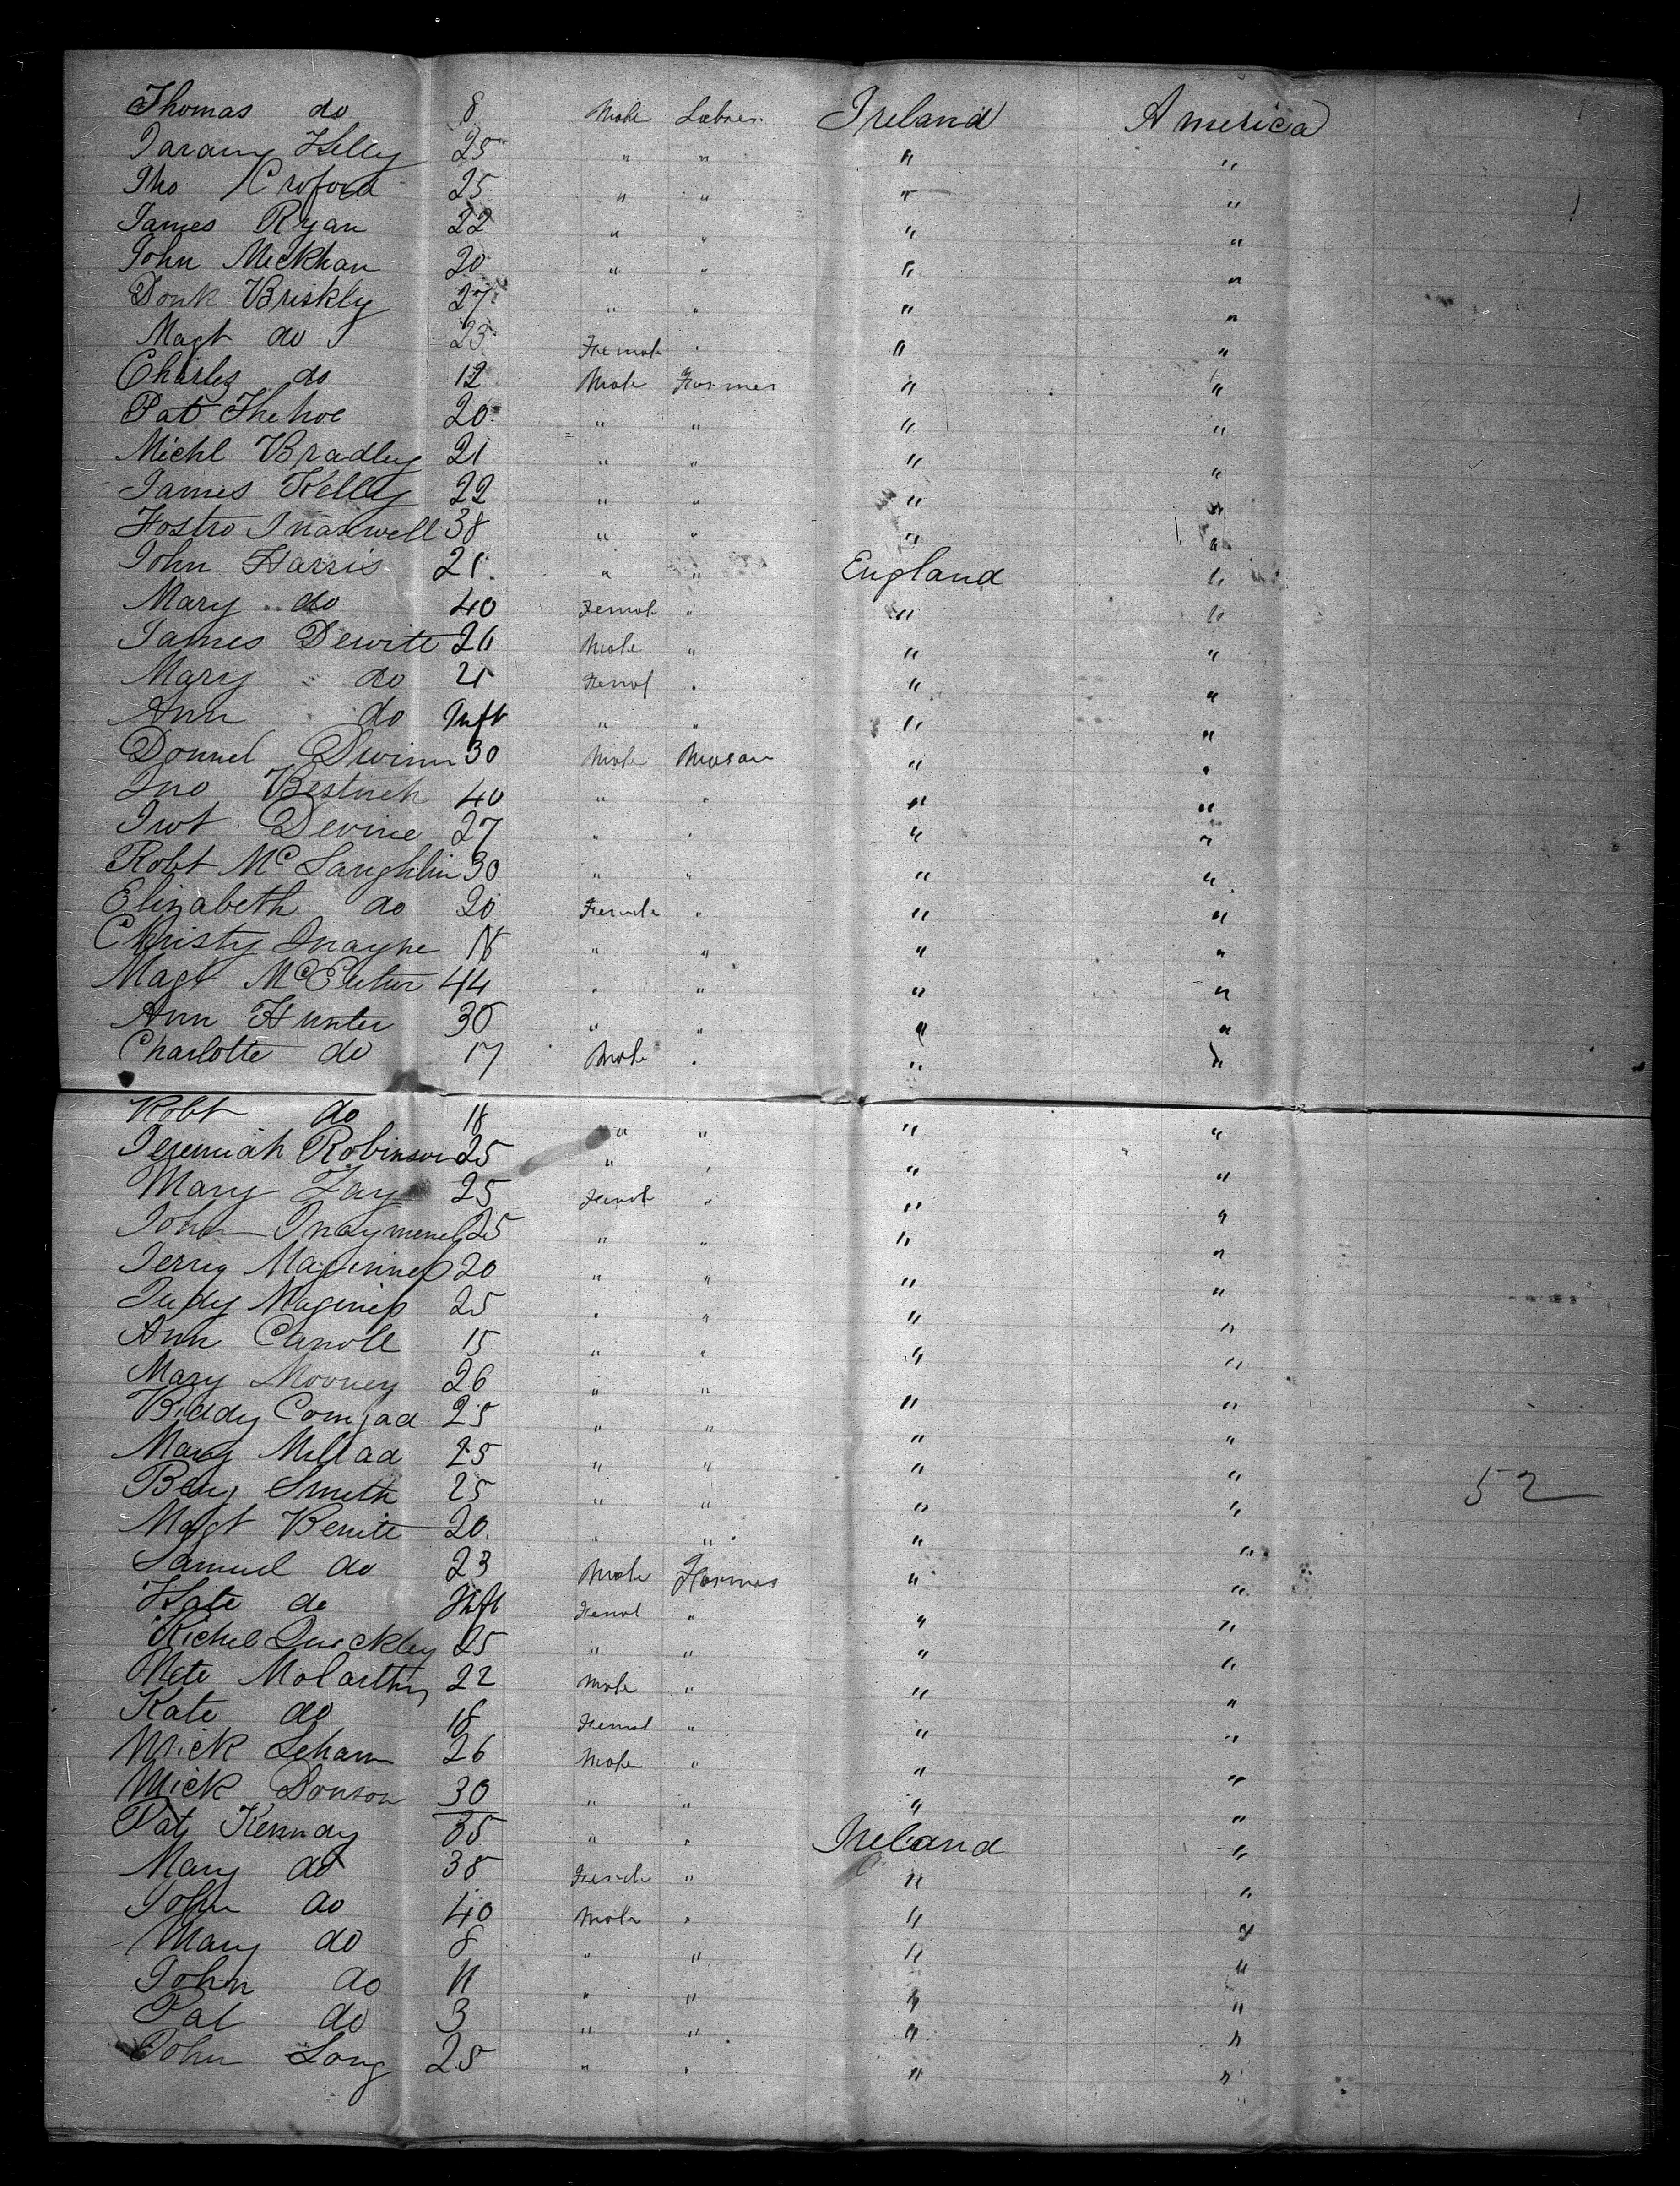 Thomas do 8 Male Labrer Ireland America
Kelly 25 " " " "
Tho Croford 25 " " " "
James Ryan 22 " " " "
John Meckhan 20 " " " "
Donk Briskly 27 " " " "
Magt do 23 Femal " " "
Charles do 12 Male Farmer " "
Pat Kehoe 20 " " " "
Michl Bradley 21 " " " "
James Kelly 22 " " " "
Fostro Maxwell 38 " " " "
John Harris 21 " " England "
Mary do 40 Femal " " "
James Dewitt 26 Male " " "
Mary do 21 Femal " " "
Ann do Inft " " " "
Donnel 30 Male Mason " "
Jno 40 " " " "
Devine 27 " " " "
Robt McLaughlin 30 " " " "
Elizabeth do 20 Female " " "
Christy Mayne 18 " " " "
Magt 44 " " " "
Ann Hunter 30 " " " "
Charlotte do 17 Male " " "
Robt do 18 " " " "
Jeremiah Robinson 25 " " " "
Mary Fay 25 Femal " " "
John 25 " " " "
Jerry Maginness 20 " " " "
Judy Maginis 25 " " " "
Ann Carroll 15 " " " "
Mary Mooney 26 " " " "
Biddy 25 " " " "
Mary 25 " " " "
Benj Smith 25 " " " " 52
Magt Benite 20 " " " "
Samuel do 23 Male Farmer " "
Kate do Inft Femal " " "
Quickley 25 " " " "
McCarthy 22 Male " " "
Kate do 18 Femal " " "
Mick Lehan 26 Male " " "
Mick Donson 30 " " " "
Pat Kennday 35 " " Ireland "
Mary do 38 Female " " "
John do 40 Male " " "
Mary do 8 " " " "
John do 11 " " " "
Pat do 3 " " " "
John Long 25 " " " "